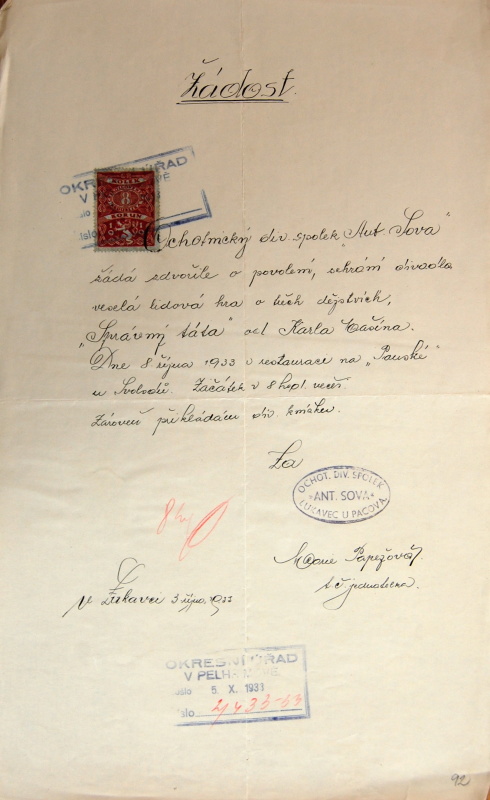 Žádost.
OKRESNÍ ÚŘAD
KOLEK
8
KORUN
Ochotnický div. spolek „Ant. Sova"
žádá zdvořile o povolení, sehrání divadla
veselá lidová hra o třech dějstvích,
„Správný táta" od Karla Čašina.
Dne 8 října 1933 v restauraci na „Panské"
u Svobodů. Začátek v 8 hod. večer.
Zároveň přikládám div. knihu.
Za
OCHOT. DIV. SPOLEK
*ANT. SOVA*
LUKAVEC U PACOVA
Papežová
t. č. jednatelka.
V Lukavci 3 října 1933
OKRESNÍ ÚŘAD
V PELHŘIMOVĚ
došlo 5. X. 1933
číslo
92